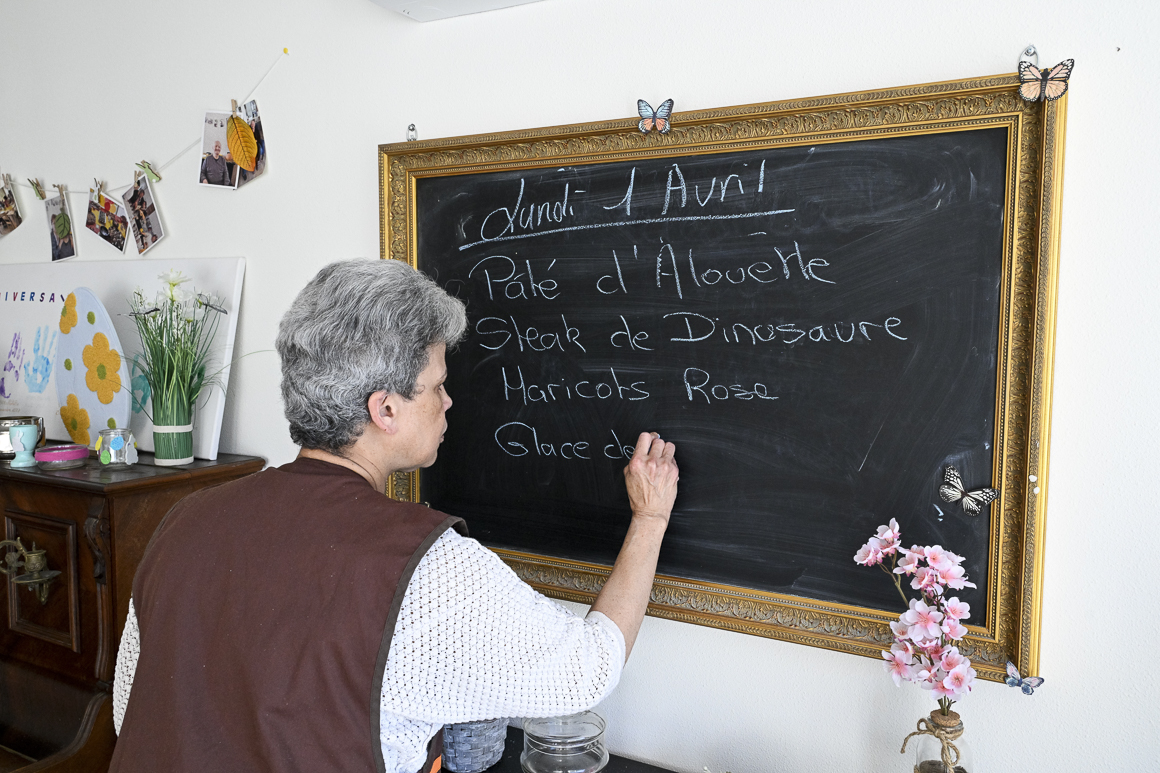 NIVERSA
Lundi 1 Avril
Pâté d'Alouëtte
Steak de Dinosaure
Haricots Rose
Glace de